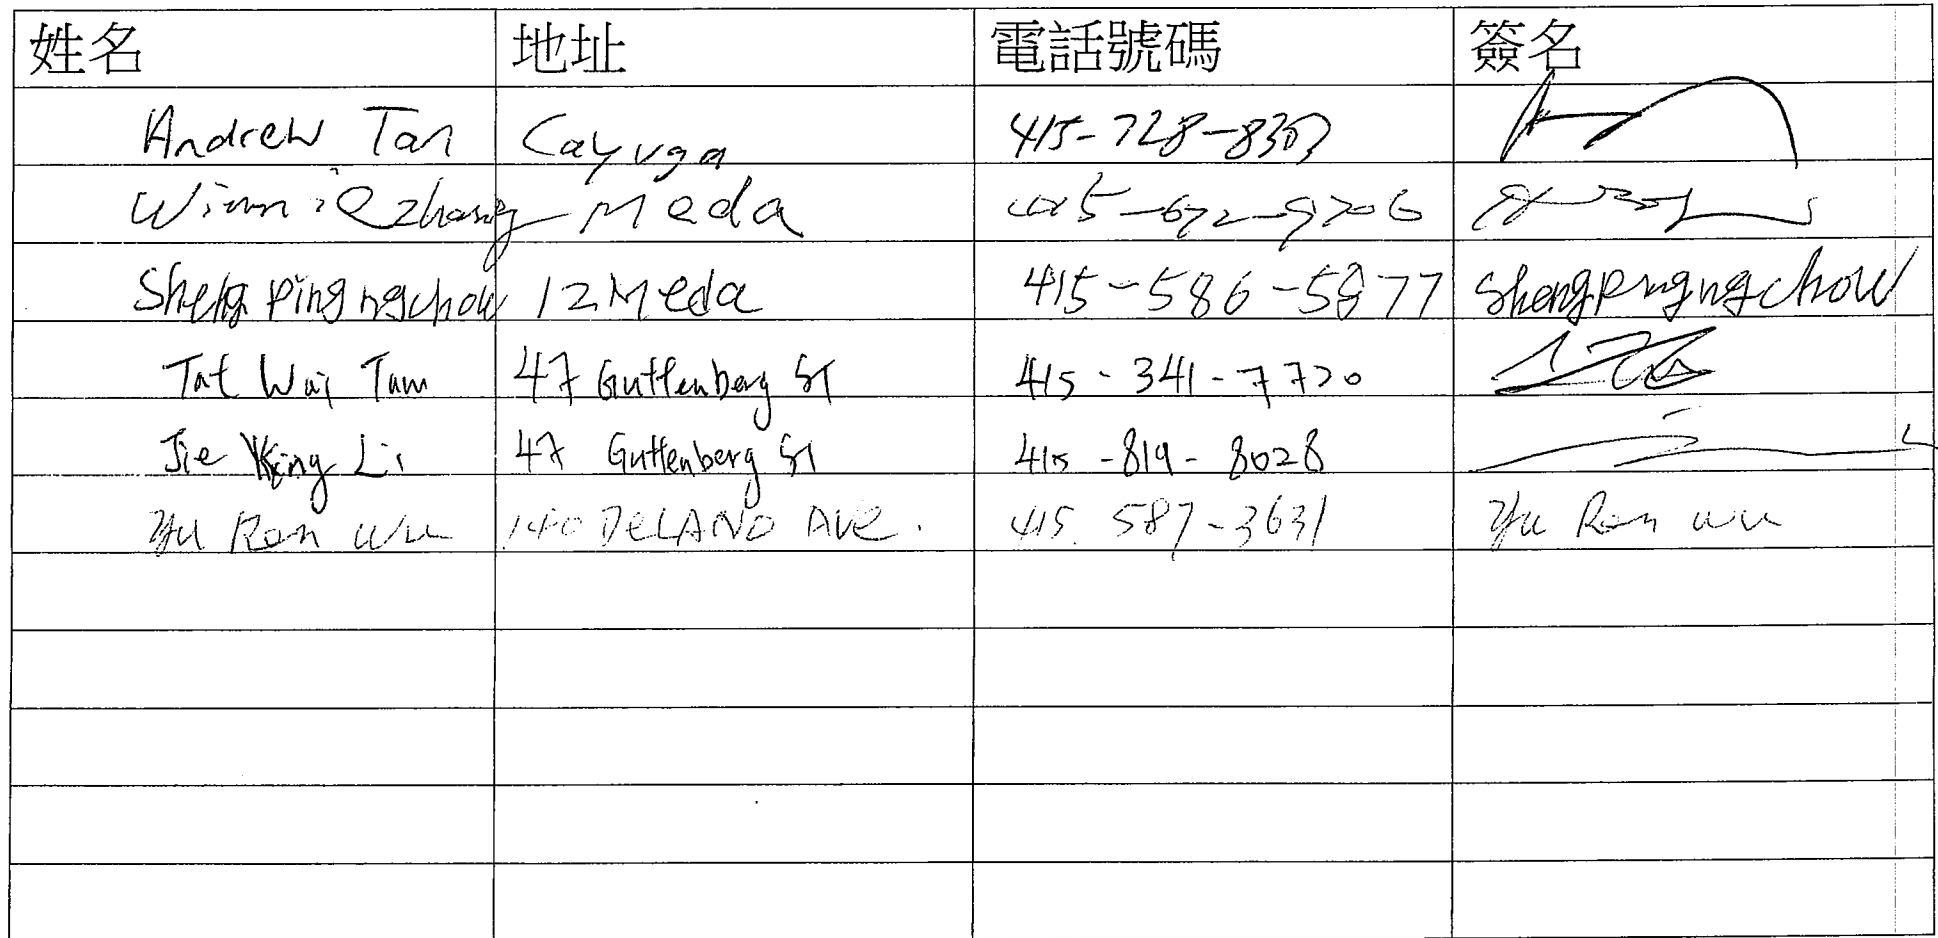 姓名 地址 電話號碼 簽名
Andrew Tan Cayuga 415-728-8303
Winnie Zhang Meda 415-672-9706
Sheng Ping ngchow 12 Meda 415-586-5877 shengpingngchow
Tat Wai Tam 47 Guttenberg ST 415-341-7720
Jie Ying Li 47 Guttenberg ST 415-819-8028
Yu Ran Wu 140 DeLANO AVe. 415.587-3631 Yu Ran Wu